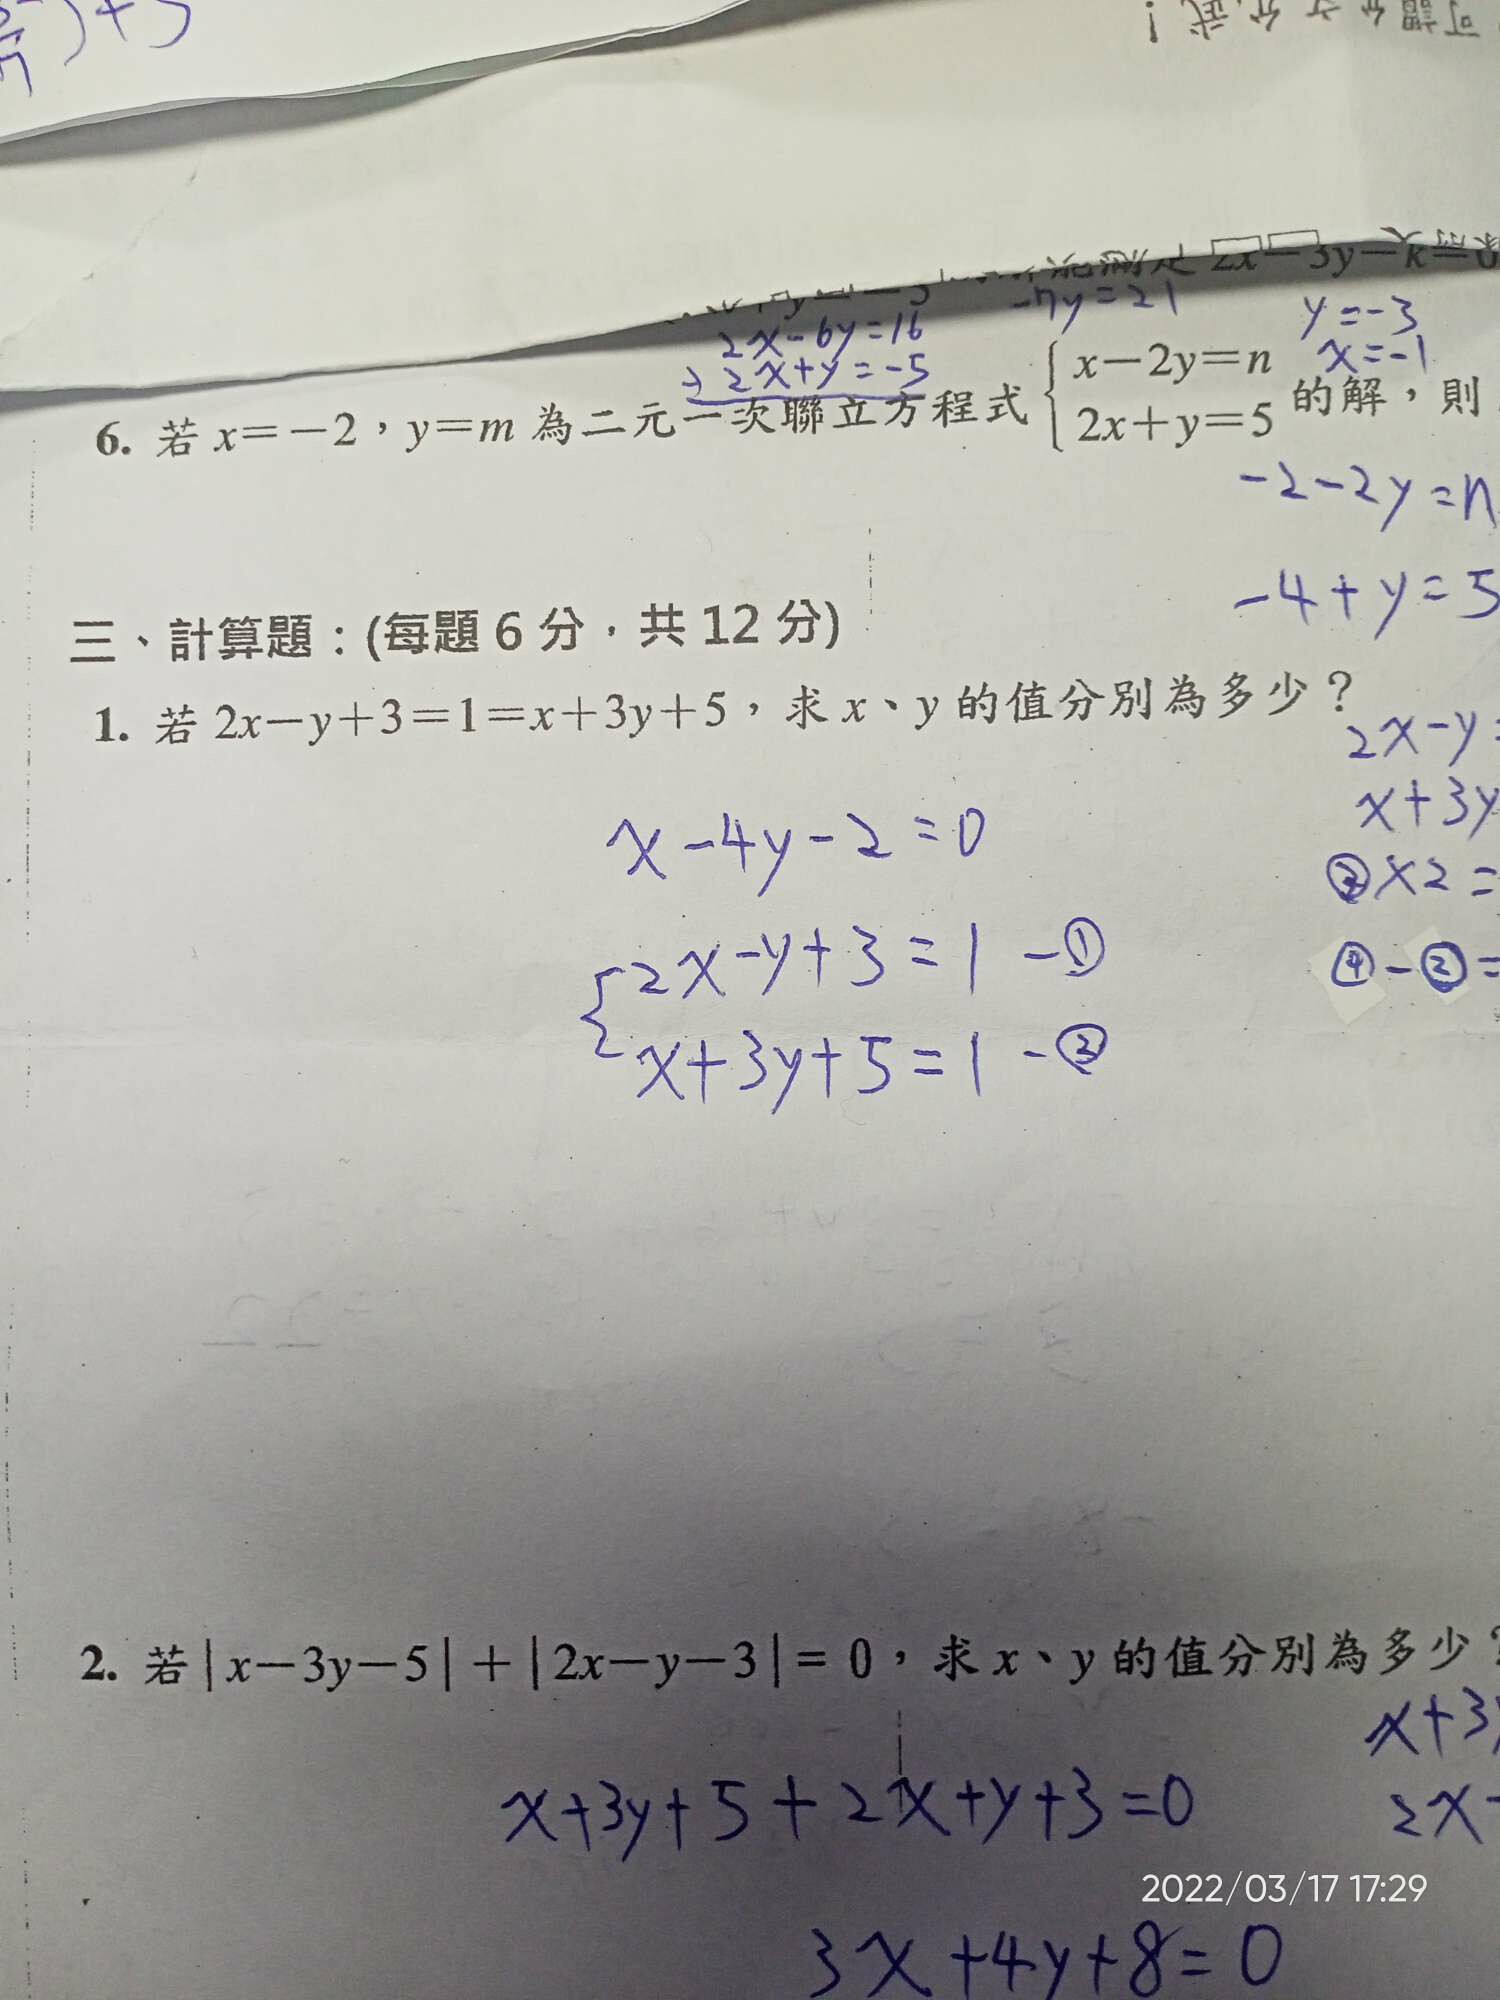 2x-3y-k=0
-7y=21
y=-3
2x-6y=16
x=-1
2x+y=-5
x-2y=n
6. 若 x=-2，y=m 為二元一次聯立方程式
的解，則
2x+y=5
-2-2y=n
-4+y=5
三、計算題：(每題 6 分，共 12 分)
1. 若 2x-y+3=1=x+3y+5，求 x、y 的值分別為多少？
2x-y=
x+3y
x-4y-2=0
②×2=
2x-y+3=1 -①
④-②=
x+3y+5=1 -②
2. 若|x-3y-5|+|2x-y-3|= 0，求 x、y 的值分別為多少？
x+3y
x+3y+5+2x+y+3=0
2x-
2022/03/17 17:29
3x+4y+8=0